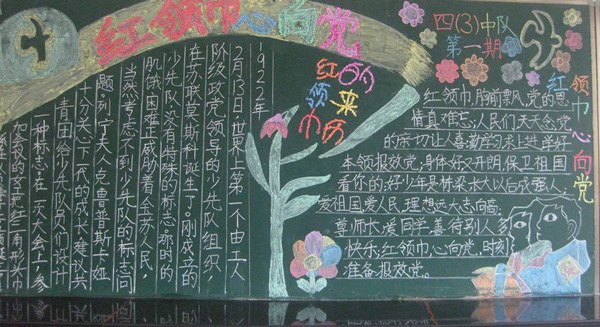 红领巾心向党
四(3)中队
第一期
红领巾心向党
红领巾
的来历
1922年
2月13日,世界上第一个由工人
阶级政党领导的少先队组织,
在苏联莫斯科诞生了。刚成立的
少先队没有特殊的标志。那时的
肌饿困难正威胁着全苏人民,
当然考虑不到少先队的标志问
题。列宁夫人克鲁普斯卡娅
十分关心下一代的成长建议共
青团给少先队员们设计
一种标志。在一次大会上,参
加会议的
把红三角形头巾
红领巾,胸前飘,党的恩
情真难忘,人民们天天念党
的亲切让人喜,勤学习求上进,学好
本领报效党,身体好又开朗,保卫祖国
看你的;好少年是栋梁,水大以后成强人,
爱祖国爱人民,理想远大志向高,
尊师长,爱同学,喜待别人多
快乐;红领巾心向党,时刻
准备报效党。